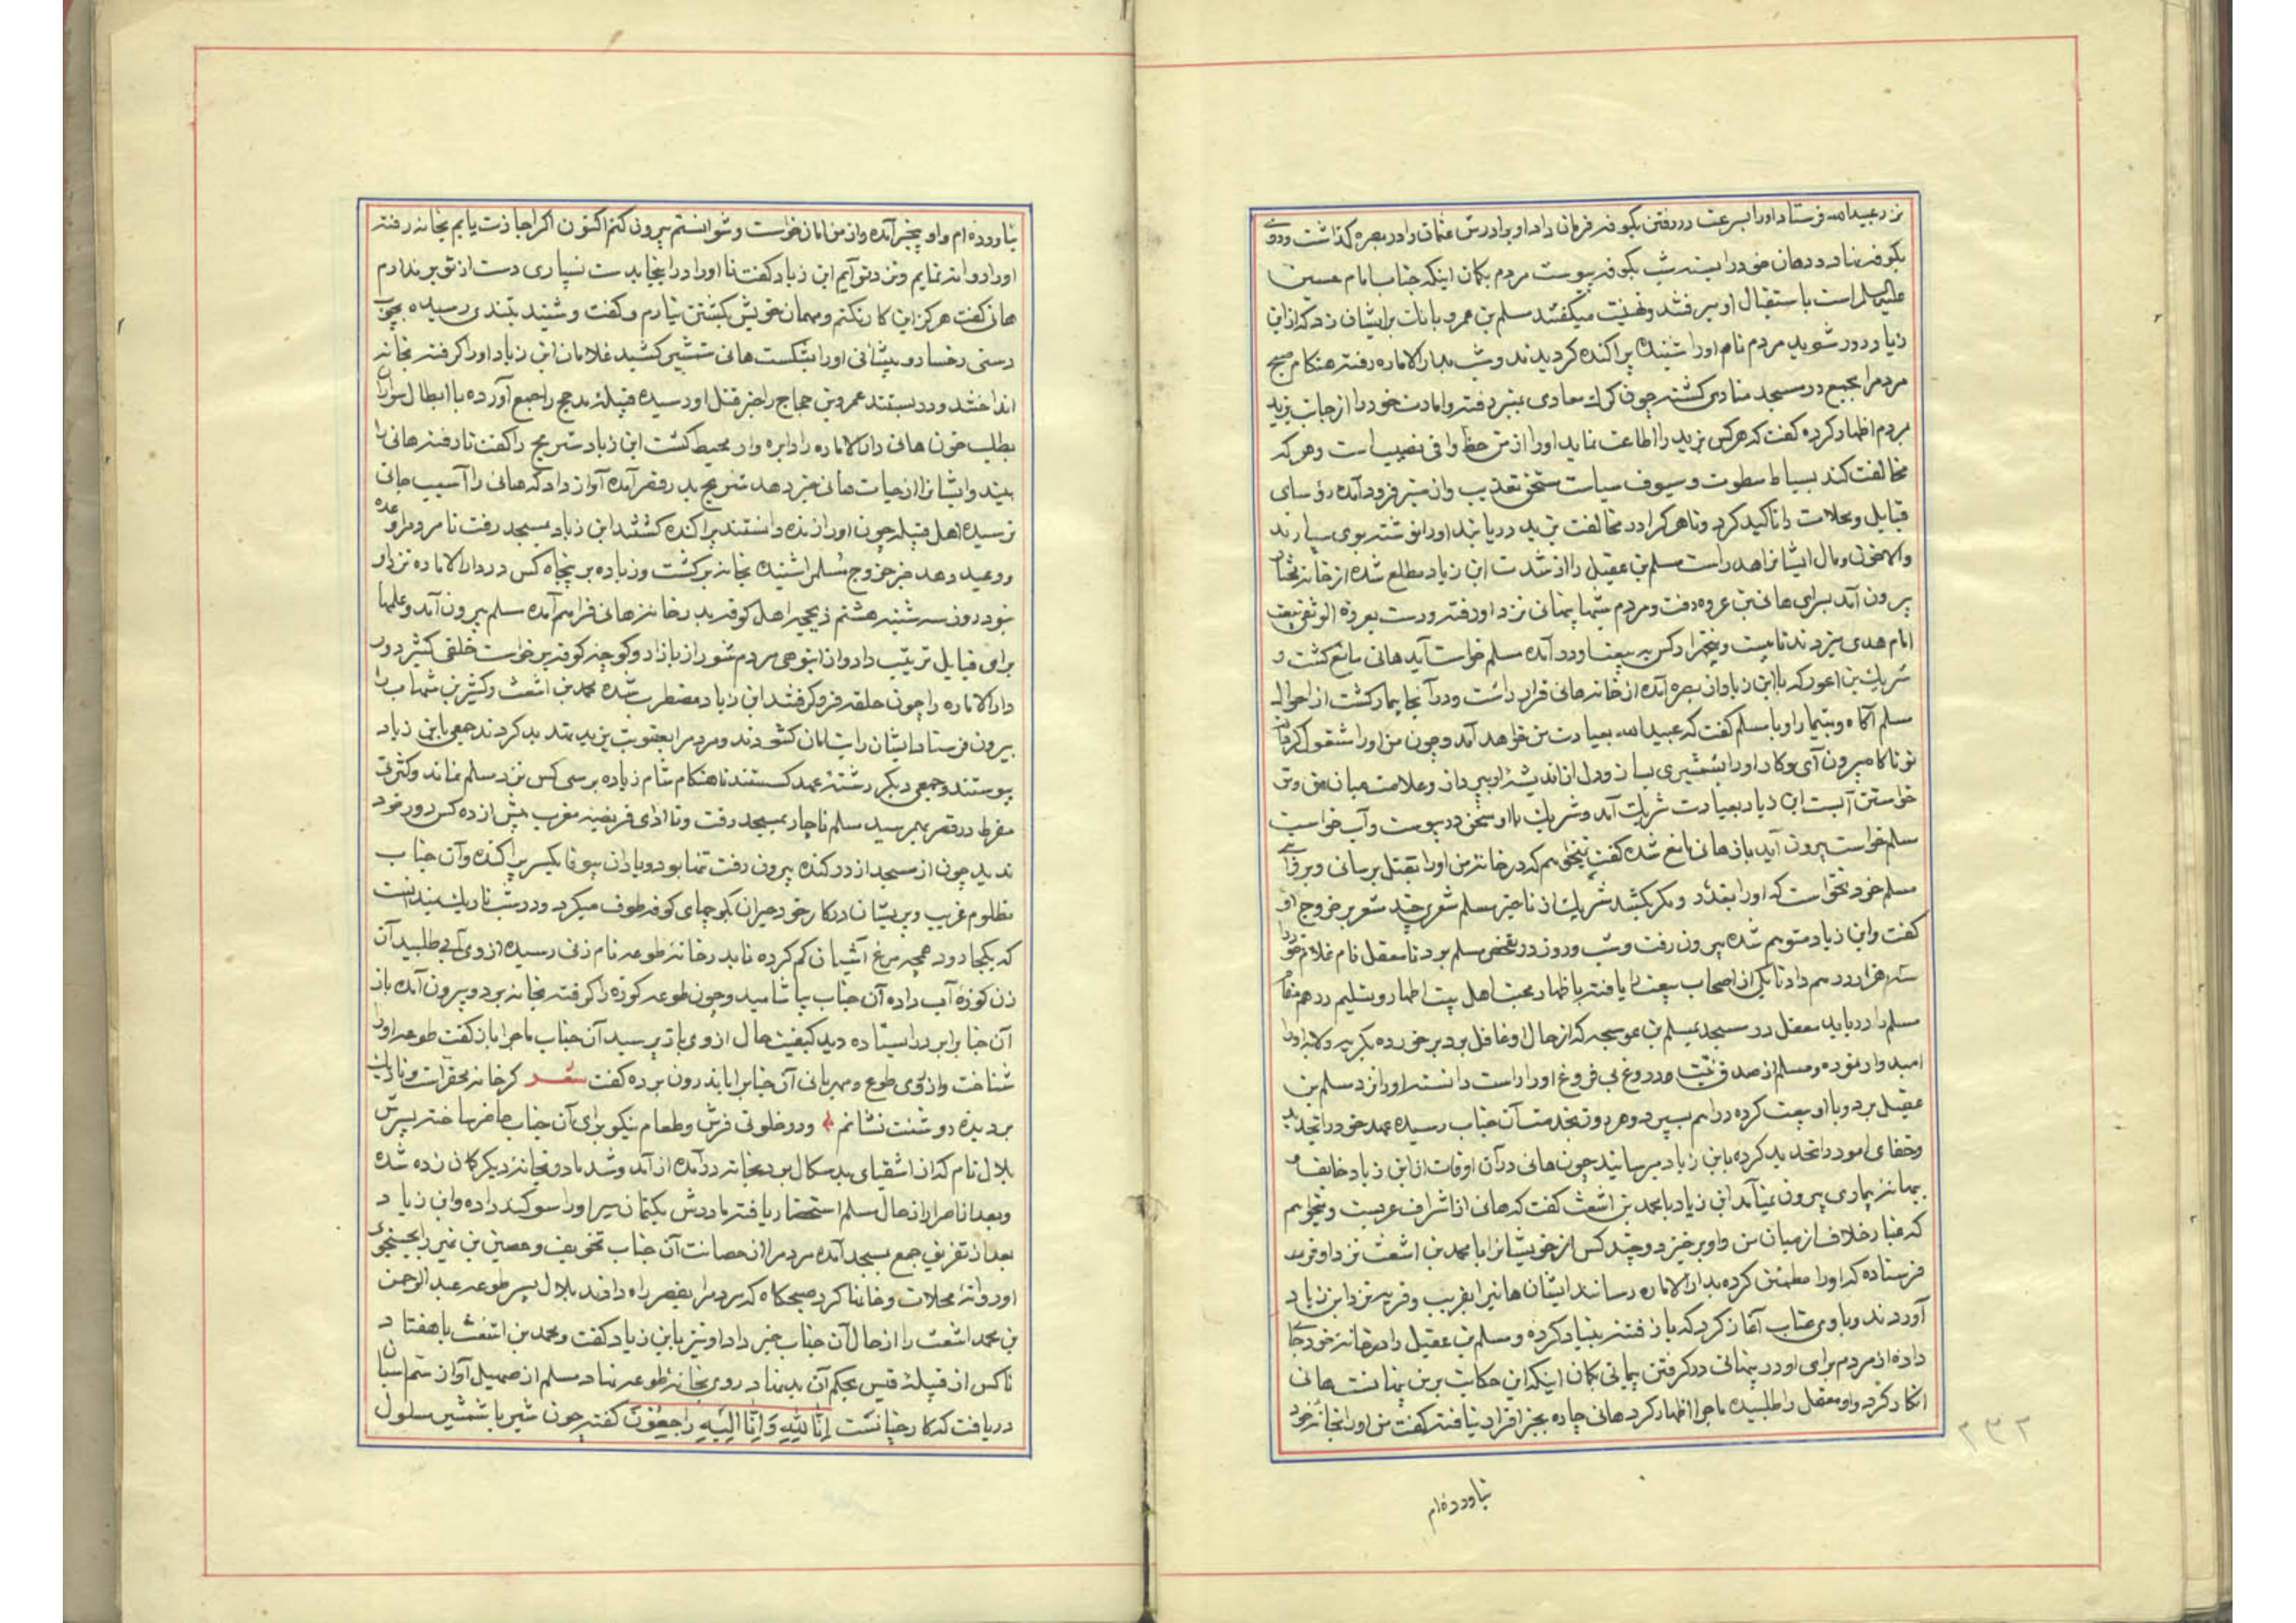 نزد عبیدالله فرستاد و او را بسرعت در رفتن بکوفه فرمان داد او برادرش عثمان را در بصره گذاشت و روی
بکوفه نهاد و دهان خود را بسته شب بکوفه پیوست مردم بگمان اینکه جناب امام حسین
علیه السلام است باستقبال او میرفتند و تهنیت میگفتند مسلم بن عمرو بانک برایشان زد که از ابن
زیاد دور شوید مردم نام او را شنیده پراکنده کردیدند و شب بدار الاماره رفته هنکام صبح
مردم را بجمع در مسجد منادی کشته چون کرک معادی بمنبر رفته و امارت خود را از جانب یزید
بمردم اظهار کرده کفت که هر کس یزید را اطاعت نماید او را از من حظ وافی نصیب است و هر که
مخالفت کند بسیاط سطوت و سیوف سیاست مستحق تعذیب و از منبر فرود آمده رؤسای
قبایل و محلات را تاکید کرد و تا هر کرا در مخالفت یزید دریابند او را نوشته بوی سپارند
والا خون و مال ایشان را هدر است مسلم بن عقیل را از شدت ابن زیاد مطلع شده از خانه مختار
بیرون آمد بسرای هانی بن عروه رفت و مردم شبها پنهانی نزد او رفته و دست بعروة الوثقی بیعت
امام هدی میزدند تا بیست و پنجهزار کس به بیعت او در آمده مسلم خواست آید هانی مانع کشت و
شریک بن اعور که با ابن زیاد از بصره آمده از خانه هانی قرار داشت و در آنجا بیمار کشت از احوال
مسلم آکاه و بتیمار او با مسلم کفت که عبیدالله بعیادت من خواهد آمد و چون من او را مشغول کردانم
تو ناکاه بیرون آی و کار او را بشمشیری بساز و دل از اندیشه او بپرداز و علامت میان من و تو
خواستن آبست ابن زیاد بعیادت شریک آمد و شریک با او سخن در پیوست و آب خواست
مسلم خواست بیرون آید باز هانی مانع شده کفت نمیخواهم که در خانه من او را بقتل برسانی و بروایتی
مسلم خود نخواست که او را بغدر و مکر بکشد شریک از تاخیر مسلم شعری چند مشعر بر خروج او
کفت و ابن زیاد متوهم شده بیرون رفت و شب و روز در تفحص مسلم بود تا معقل نام غلام خود را
سه هزار درهم داد تا یکی از اصحاب بیعت را یافته باظهار محبت اهل بیت اطهار و تسلیم درهم مقام
مسلم را دریابد معقل در مسجد بمسلم بن عوسجه که از حال او غافل بود برخورده بکریه و لابه او را
امیدوار نموده و مسلم از صدق نیت دروغ بی فروغ او را راست دانسته او را نزد مسلم بن
عقیل برد و با او بیعت کرده دراهم بسپرد و هر روز بخدمت آن جناب رسیده عهد خود را تجدید
و خفای امور را تحدید کرده بابن زیاد میرسانید چون هانی در آن اوقات از ابن زیاد خایف و
ببهانه بیماری بیرون نمیآمد ابن زیاد با محمد بن اشعث کفت که هانی از اشراف عربست و نمیخواهم
که غبار خلاف از میان من و او برخیزد و چند کس از خویشانرا با محمد بن اشعث نزد او
فرستاده که او را مطمئن کرده بدار الاماره رسانند ایشان هانی را بفریب و نزد ابن زیاد
آوردند و با وی عتاب آغاز کرد که باز فتنه بنیاد کرده و مسلم بن عقیل را در خانه خود جای
داده از مردم برای او در پنهانی در کرفتن پیمانی بکمان اینکه این حکایت بر من پنهانست هانی
انکار کرد و او معقل را طلبیده ماجرا اظهار کرد هانی چاره بجز اقرار نیافته کفت من او را بخانه خود
نیاورده ام
۲۳۲
نیاورده ام و او بیخبر آمده و از من امان خواست و نتوانستم بیرون کنم اکنون اکر اجازت یابم بخانه رفته
او را روانه نمایم و نزد تو آیم ابن زیاد کفت تا او را در اینجا بدست نسپاری دست از تو بر ندارم
هانی کفت هرکز این کار نکنم و مهمان خویش بکشتن نیارم و کفت و شنید بتندی رسیده بچوب
دستی رخسار و پیشانی او را بشکست هانی شمشیر کشید غلامان ابن زیاد او را کرفته بخانه
انداختند و در بستند عمرو بن حجاج را خبر قتل او رسیده قبیله مذحج را جمع آورده با ابطال سواران
بطلب خون هانی دار الاماره را دایره وار محیط کشت ابن زیاد شریح را کفت تا رفته هانی را
بیند و ایشان را از حیات هانی خبر دهد شریح بدر قصر آمده آواز داد که هانی را آسیب جانی
نرسیده اهل قبیله چون او را زنده دانستند پراکنده کشتند ابن زیاد بمسجد رفت تا مردم را وعده
و وعید دهد خبر خروج مسلم را شنیده بخانه برکشت و زیاده بر پنجاه کس در دار الاماره نزد او
نبود روز سه شنبه هشتم ذیحجه اهل کوفه بدر خانه هانی فراهم آمده مسلم بیرون آمد و علمها
برای قبایل ترتیب داد و از انبوهی مردم شور از بازار و کوچه کوفه برخواست خلقی کثیر دور
دار الاماره را چون حلقه فرو کرفتند ابن زیاد مضطرب شده محمد بن اشعث و کثیر بن شهاب را
بیرون فرستاد ایشان رایت امان کشودند و مردم را بعقوبت یزید تهدید کردند جمعی بابن زیاد
پیوستند و جمعی دیکر رشته عهد کسستند تا هنکام شام زیاده بر سی کس نزد مسلم نماند و کثرتی
مفرط در قصر بهم رسید مسلم ناچار بمسجد رفت و تا ادای فریضه مغرب بیش از ده کس دور خود
ندید چون از مسجد از در کنده بیرون رفت تنها بود و یاران بیوفا یکسر پراکنده و آن جناب
مظلوم غریب و پریشان در کار خود حیران بکوچهای کوفه طوف میکرد و در شب تاریک نمیدانست
که بکجا رود همچه مرغ آشیان کم کرده تا بدر خانه طوعه نام زنی رسیده از وی آبی طلبید آن
زن کوزه آب داده آن جناب بیاشامید و چون طوعه کوزه را کرفته بخانه برد و بیرون آمده باز
آن جناب را بر در ایستاده دید کیفیت حال از وی باز پرسید آن جناب ماجرا باز کفت طوعه او را
شناخت و از روی طوع و مهربانی آن جناب را باندرون برده کفت شعر کر خانه محقر است و تاریک
بر دیده روشنت نشانم و در خلوتی فرش و طعام نیکو برای آن جناب حاضر ساخته پسرش
بلال نام که از اشقیای بدسکال بود بخانه در آمده از آمد و شد مادر بخانه دیکر کمان زده شده
و بعد از اصرار از حال مسلم استحضار یافته مادرش بکتمان سر او را سوکند داده و ابن زیاد
بعد از تفریق جمع بمسجد آمده مردم را از حصانت آن جناب تخویف و حصین بن نمیر را بجستجوی
او روانه محلات و خانها کرد صبحکاه که مردم را بقصر راه دادند بلال پسر طوعه عبدالرحمن
بن محمد اشعث را از حال آن جناب خبر داد او نیز بابن زیاد کفت و محمد بن اشعث با هفتاد
ناکس از قبیله قیس بحکم آن بدنهاد روی بخانه طوعه نهاد مسلم از صهیل آواز سم اسبان
دریافت که کار چیانست اِنّا لِلّهِ وَاِنّا اِلَیهِ راجِعُونَ کفته چون شیر با شمشیر مسلول